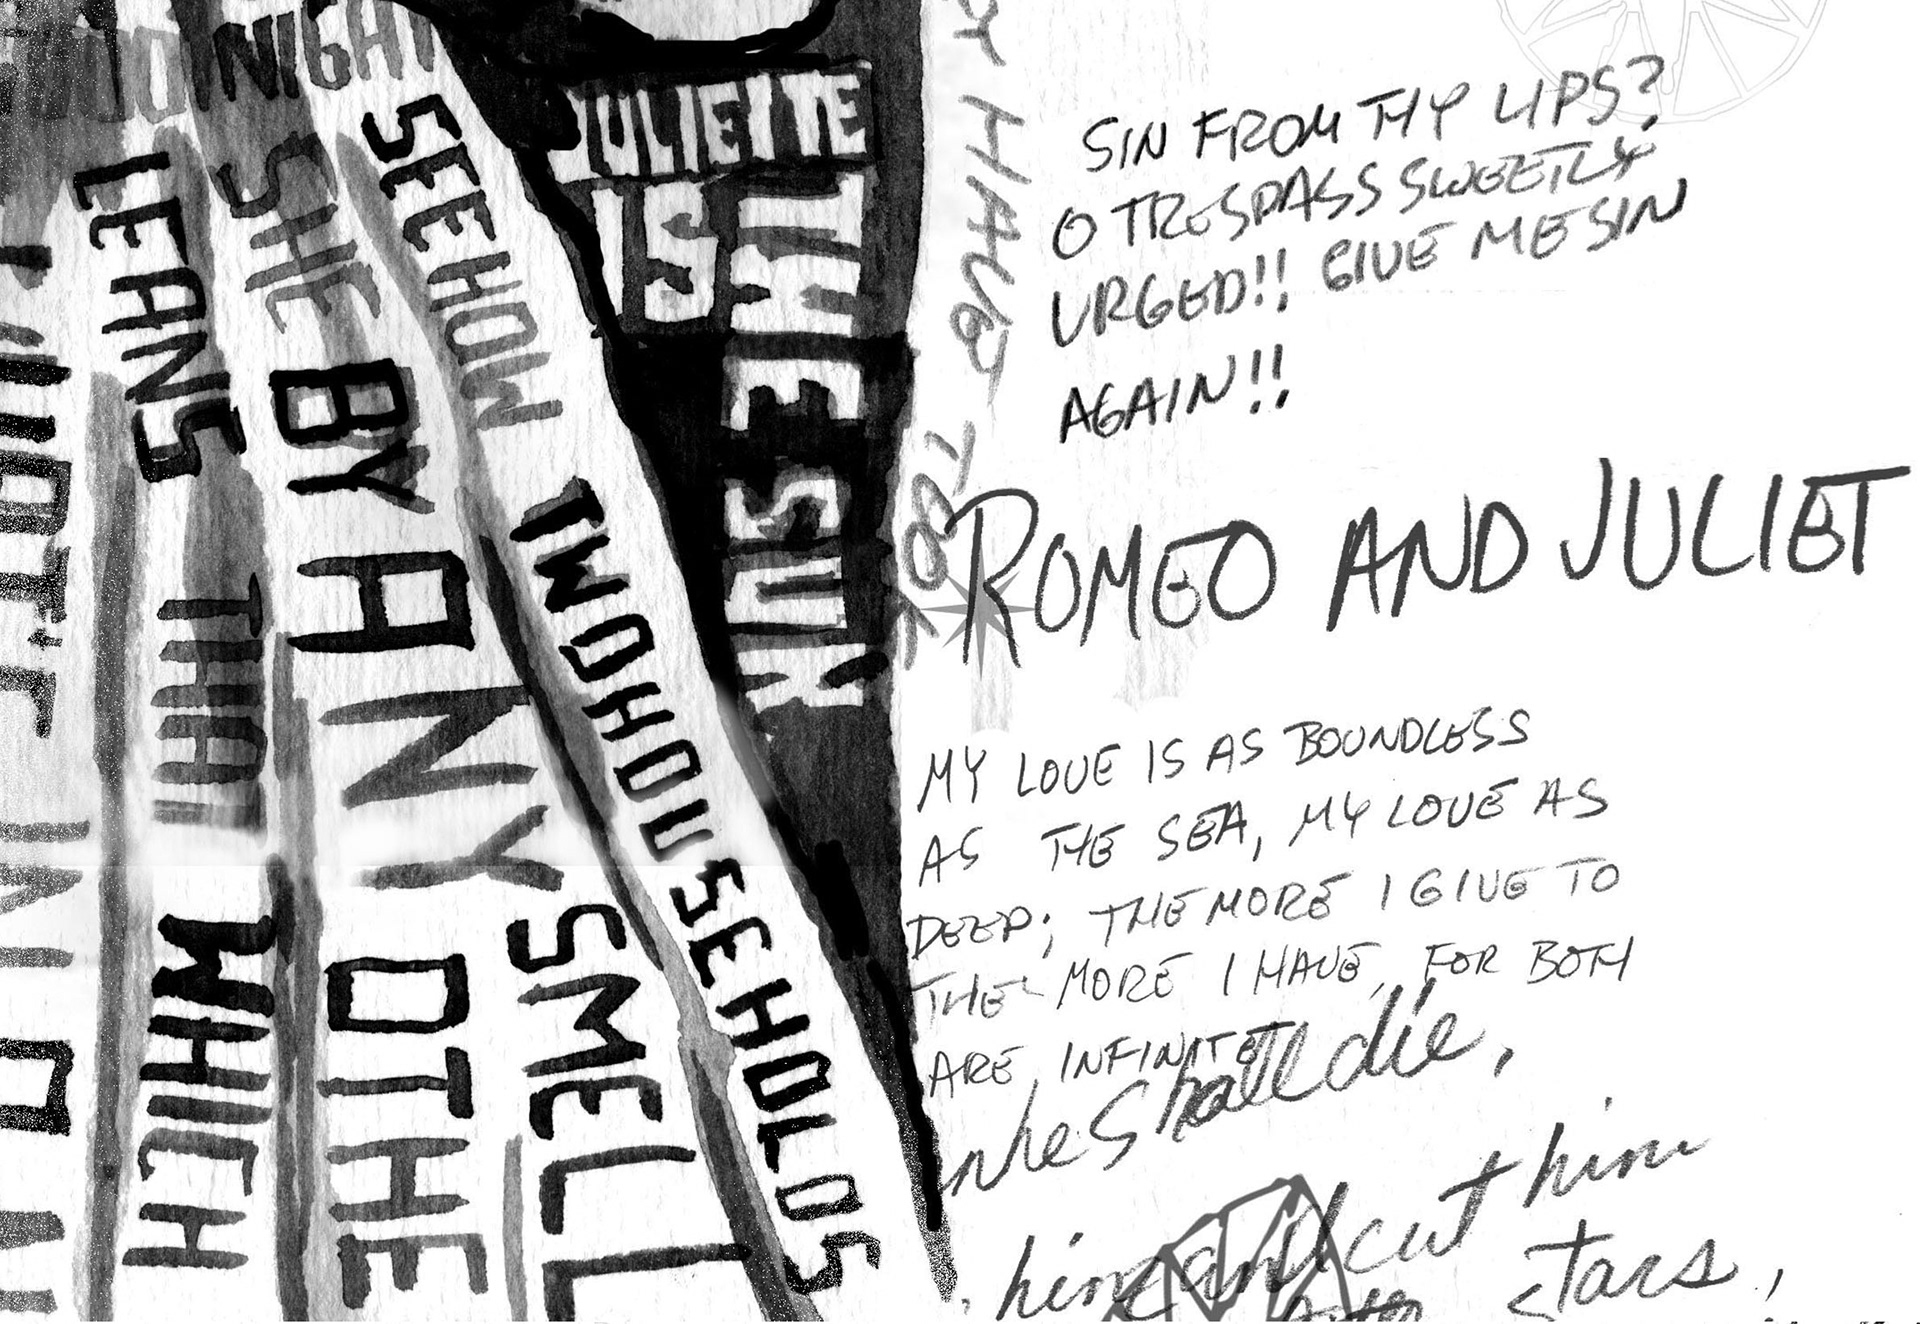 NIGHT
LEANS
THAT
WHICH
SHE
BY ANY OTHE
SMELL
SEE HOW TWO HOUSEHOLDS
JULIETTE
IS THE SUN
HAVE TOOK
SIN FROM THY LIPS?
O TRESPASS SWEETLY
URGED!! GIVE ME SIN
AGAIN!!
ROMEO AND JULIET
MY LOVE IS AS BOUNDLESS
AS THE SEA, MY LOVE AS
DEEP; THE MORE I GIVE TO
THE MORE I HAVE, FOR BOTH
ARE INFINITE
he Shall die,
him and cut him
stars,